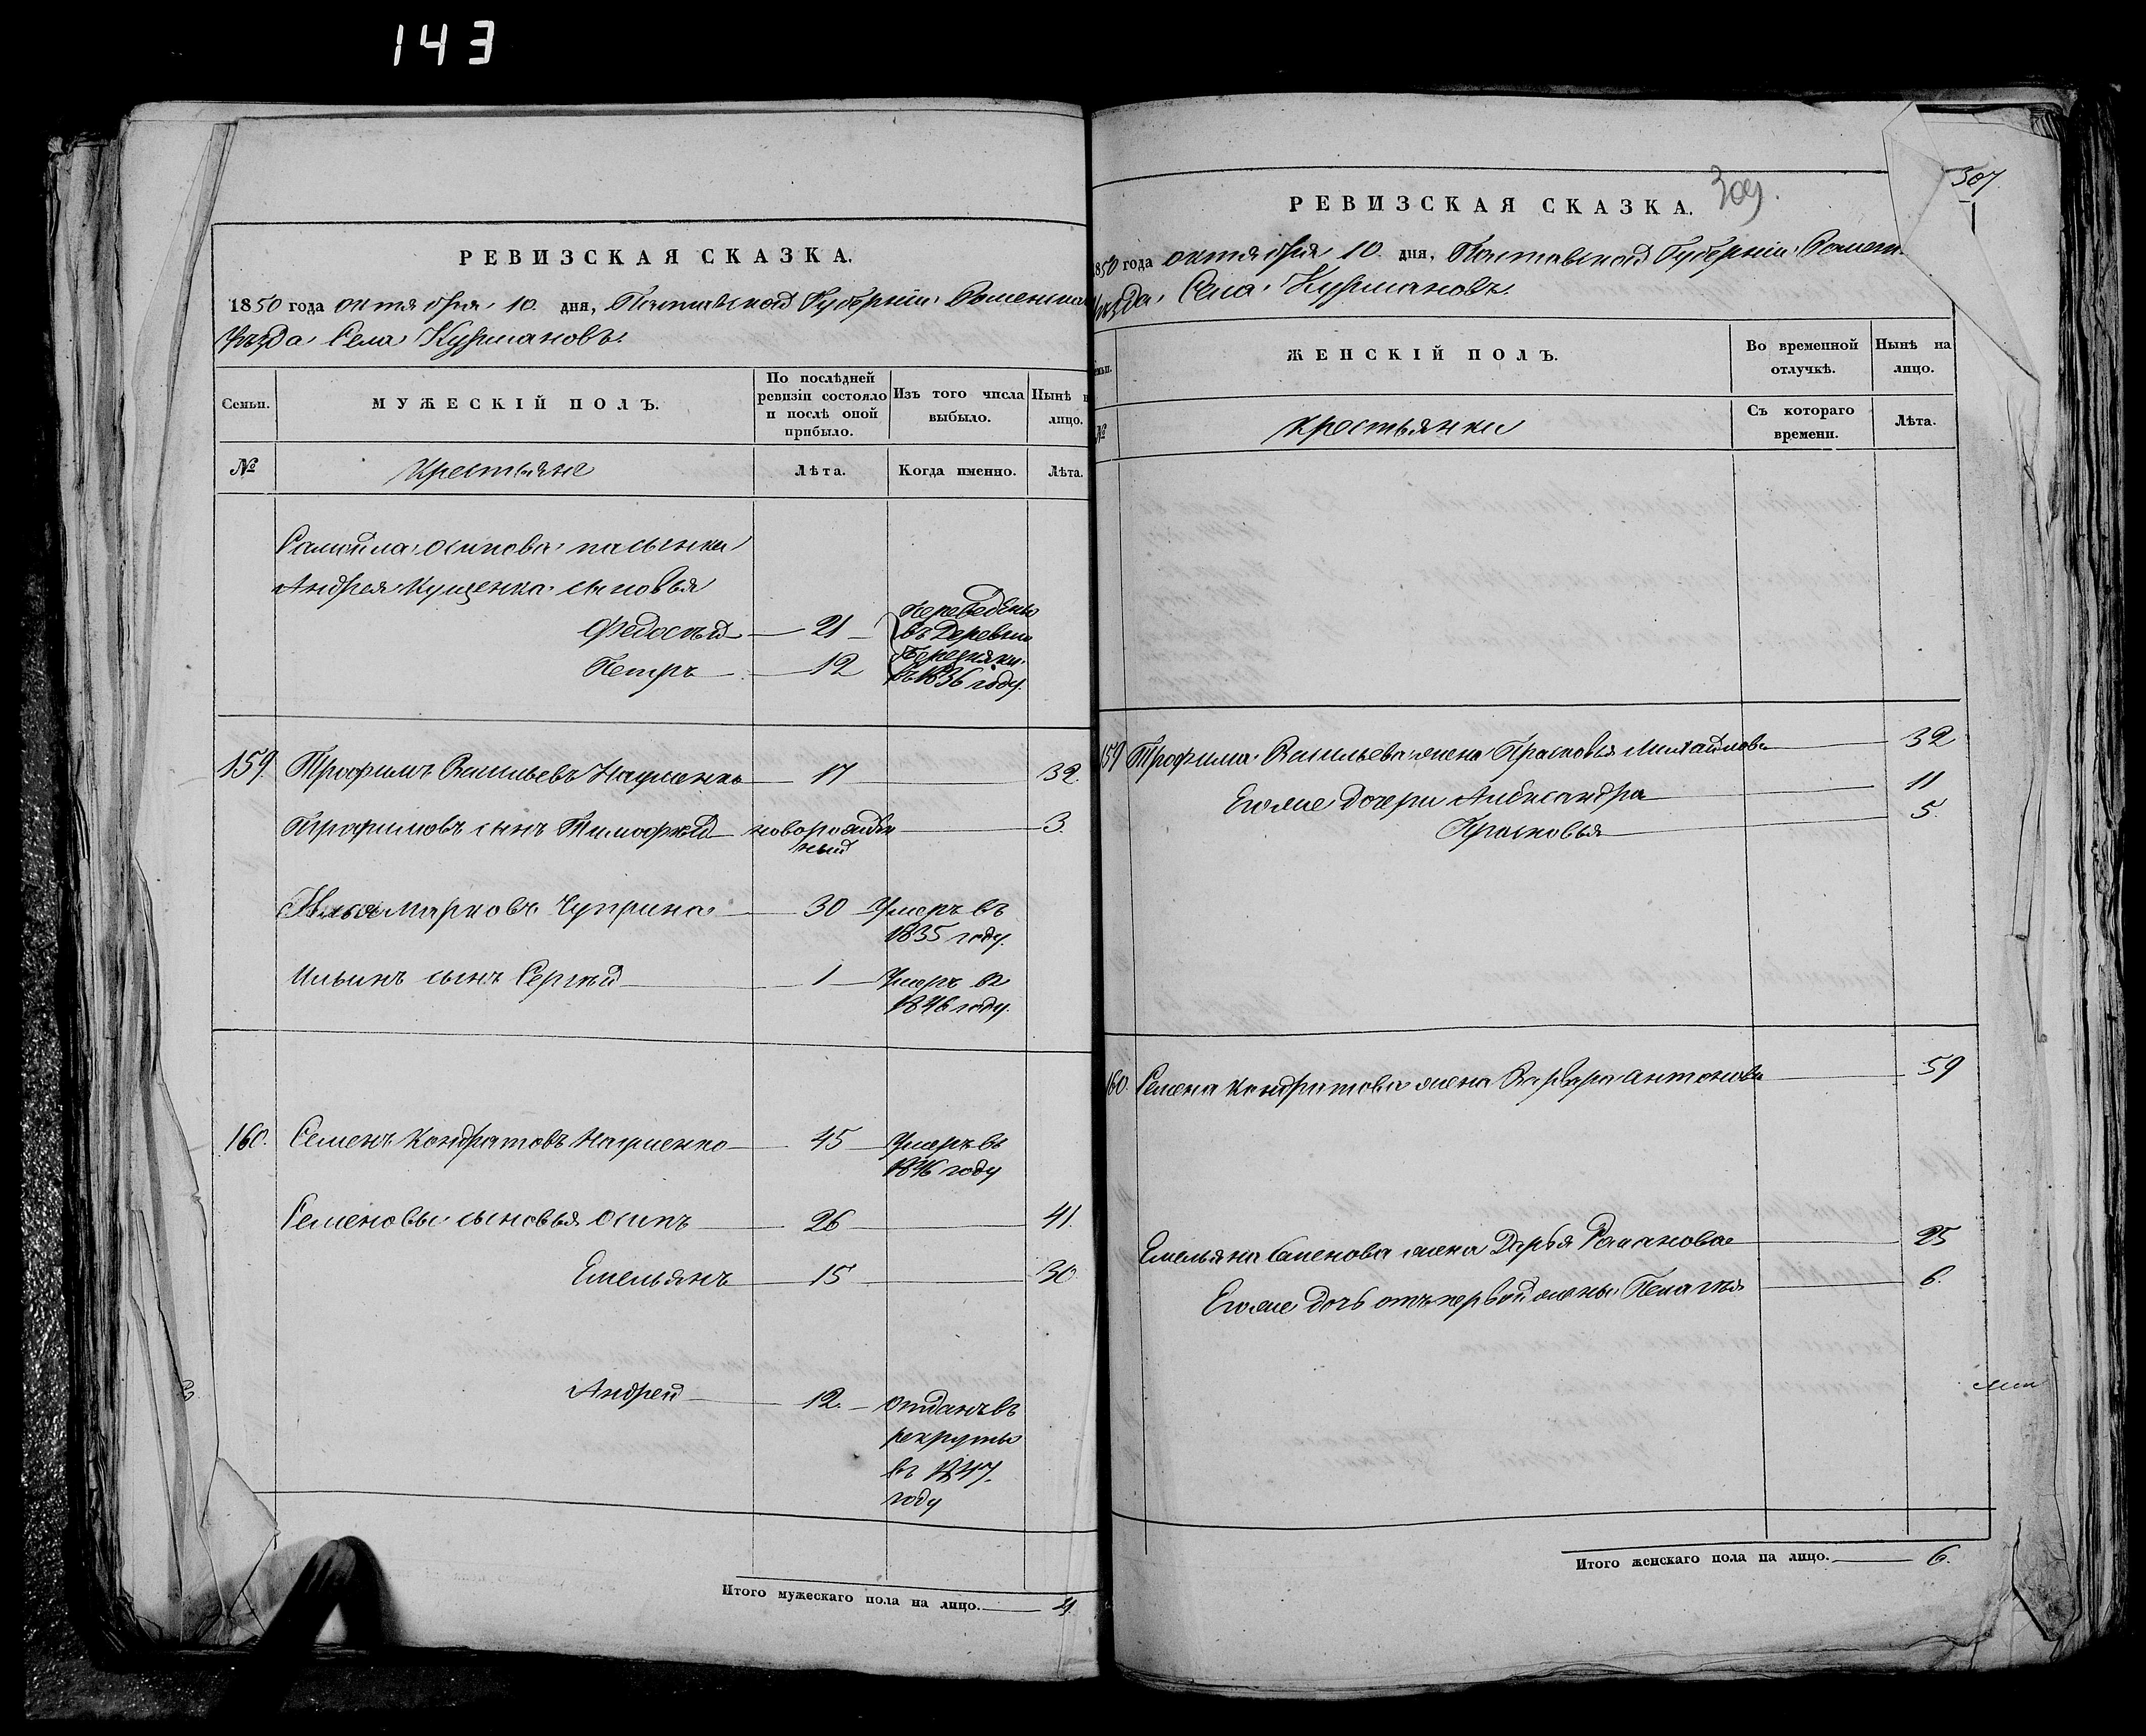 143
РЕВИЗСКАЯ СКАЗКА.
1850 года октября 10. дня, Полтавской Губерніи Роменска
Уѣзда Села Курмановъ.
Семьи.
МУЖЕСКІЙ ПОЛЪ.
По послѣдней ревизіи состояло и послѣ оной прибыло.
Изъ того числа выбыло.
Нынѣ н лицо.
№
Крестьяне
Лѣта.
Когда именно.
Лѣта.
Самойла Осипова пасынки
Андрея Кущенка сыновья
Федосѣй 21
Петръ 12
Переведены
въ Деревню
въ 1836 году.
159. Трофимъ Васильевъ Науменко 17 32.
Трофимовъ сынъ Тимофѣй новорожден 3.
ный
Илья Марковъ Чуприна 30 Умеръ въ
1835 году.
Ильинъ сынъ Сергѣй 1 Умеръ въ
1846 году.
160. Семенъ Кондратовъ Науменко 45 Умеръ въ
1846 году
Семеновы сыновья Осипъ 26 41.
Емельянъ 15 30
Андрей 12. отданъ въ
рекруты
въ 1847.
году
Итого мужескаго пола на лицо. 4
РЕВИЗСКАЯ СКАЗКА.
309.
307.
1850 года октября 10. дня, Полтавской Губерніи Ромен.
Уѣзда Села Курмановъ.
ЖЕНСКІЙ ПОЛЪ.
Во временной отлучкѣ.
Нынѣ на лицо.
№
Крестьянки
Съ котораго времени.
Лѣта.
159 Трофима Васильева жена Прасковья Михайлова 32
Его же дочери Александра 11
Прасковья 5.
160. Семена Кондратова жена Варвара Антонова 59
Емельяна Семенова жена Дарья Романова 25
Его же дочь отъ первой жены Пелагѣя 6.
Итого женскаго пола на лицо. 6.